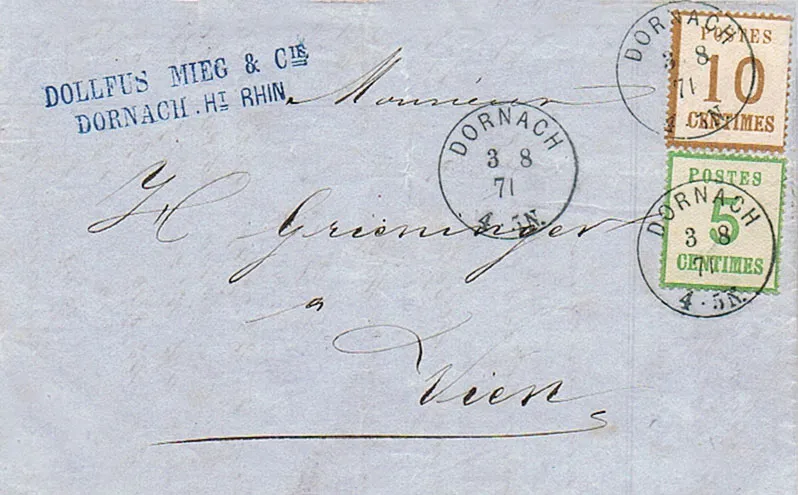 DOLLFUS MIEG & CIE
DORNACH. HT RHIN
Monsieur
H Grieninger
a
Wien
DORNACH
3 8
71
4-5N.
DORNACH
3 8
71
4-5N.
POSTES
10
CENTIMES
DORNACH
3 8
71
4-5N.
POSTES
5
CENTIMES